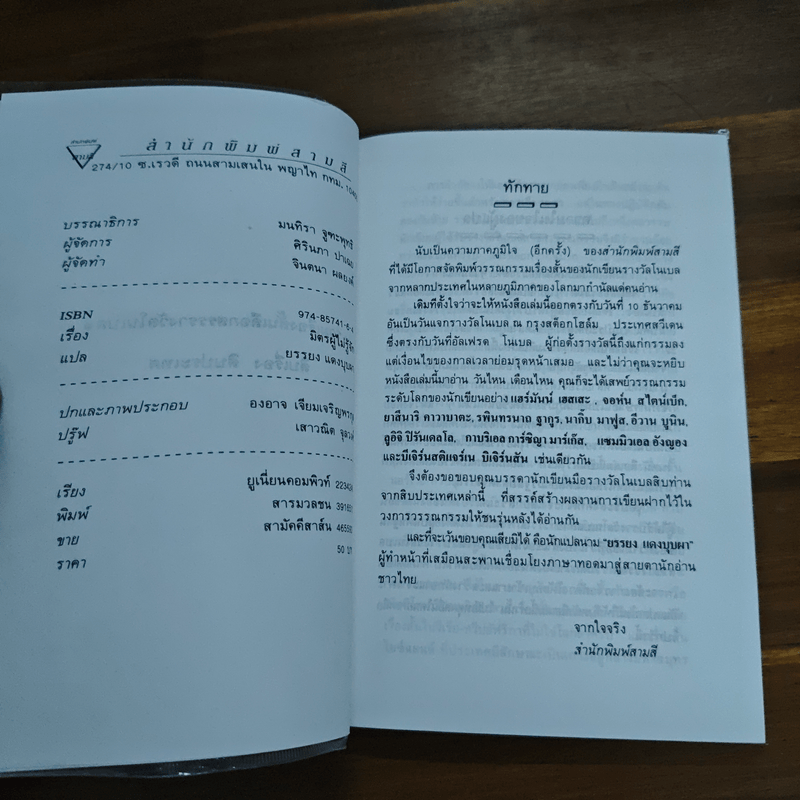 สามสี
สำนักพิมพ์สามสี
274/10 ซ.เรวดี ถนนสามเสนใน พญาไท กทม.
บรรณาธิการ มนทิรา จูฑะพุทธิ
ผู้จัดการ ศิรินภา
ผู้จัดทำ จินตนา
ISBN 974-85741-6-
เรื่อง มิตรผู้ไม่รู้จัก
แปล ยรรยง แดงบุบผา
ปกและภาพประกอบ องอาจ เจียมเจริญพรกุล
ปรู๊ฟ เสาวณิต
เรียง ยูเนี่ยนคอมพิวท์
พิมพ์ สารมวลชน
ขาย สามัคคีสาส์น
ราคา 50
ทักทาย
นับเป็นความภาคภูมิใจ (อีกครั้ง) ของสำนักพิมพ์สามสี
ที่ได้มีโอกาสจัดพิมพ์วรรณกรรมเรื่องสั้นของนักเขียนรางวัลโนเบล
จากหลากประเทศในหลายภูมิภาคของโลกมากำนัลแด่คนอ่าน
เดิมทีตั้งใจว่าจะให้หนังสือเล่มนี้ออกตรงกับวันที่ 10 ธันวาคม
อันเป็นวันแจกรางวัลโนเบล ณ กรุงสต็อกโฮล์ม ประเทศสวีเดน
ซึ่งตรงกับวันที่อัลเฟรด โนเบล ผู้ก่อตั้งรางวัลนี้ถึงแก่กรรมลง
แต่เงื่อนไขของกาลเวลาย่อมรุดหน้าเสมอ และไม่ว่าคุณจะหยิบ
หนังสือเล่มนี้มาอ่าน วันไหน เดือนไหน คุณก็จะได้เสพย์วรรณกรรม
ระดับโลกของนักเขียนอย่าง แฮร์มันน์ เฮสเสะ, จอห์น สไตน์เบ็ก,
ยาสึนาริ คาวาบาตะ, รพินทรนาถ ฐากูร, นากิ๊บ มาฟูส, อีวาน บูนิน,
ลูอิจิ ปิรันเดลโล, กาบริเอล การ์ซิญา มาร์เก็ส, แซมมิวเอล อังญอง
และบีเจิร์นสติแจร์เน บิเจิร์นสัน เช่นเดียวกัน
จึงต้องขอขอบคุณบรรดานักเขียนมือรางวัลโนเบลสิบท่าน
จากสิบประเทศเหล่านี้ ที่สรรค์สร้างผลงานการเขียนฝากไว้ใน
วงการวรรณกรรมให้ชนรุ่นหลังได้อ่านกัน
และที่จะเว้นขอบคุณเสียมิได้ คือนักแปลนาม "ยรรยง แดงบุบผา"
ผู้ทำหน้าที่เสมือนสะพานเชื่อมโยงภาษาทอดมาสู่สายตานักอ่าน
ชาวไทย
จากใจจริง
สำนักพิมพ์สามสี